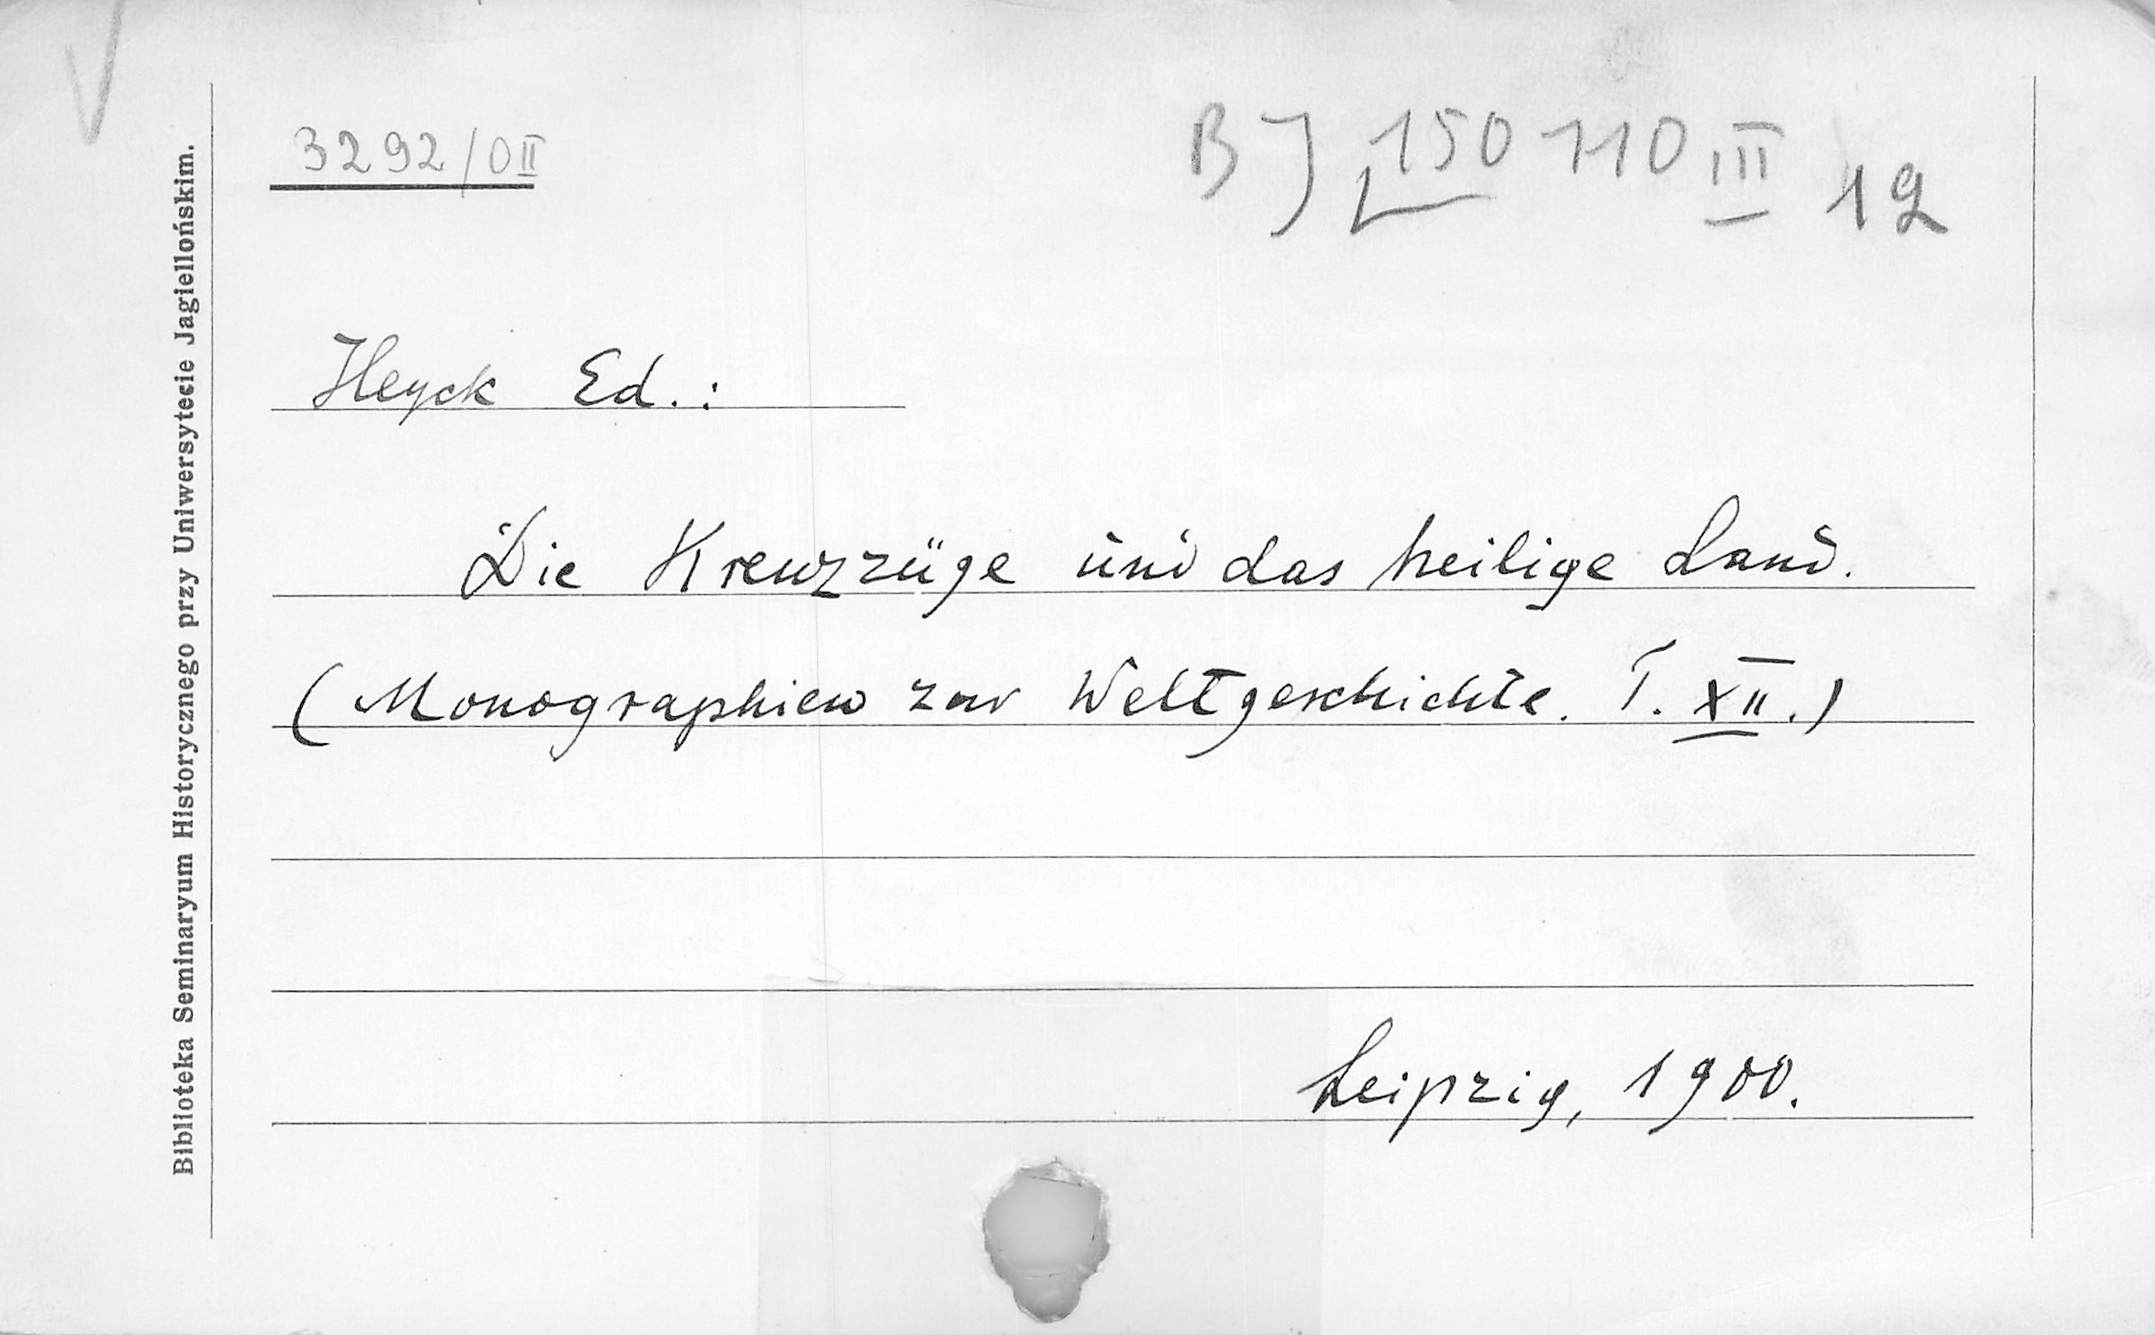 3292/O II
BJ 150 110 III 12
Heyck Ed.:
Die Kreuzzüge und das heilige Land.
(Monographien zur Weltgeschichte. T. XII.)
Leipzig, 1900.
Biblioteka Seminaryum Historycznego przy Uniwersytecie Jagiellońskim.